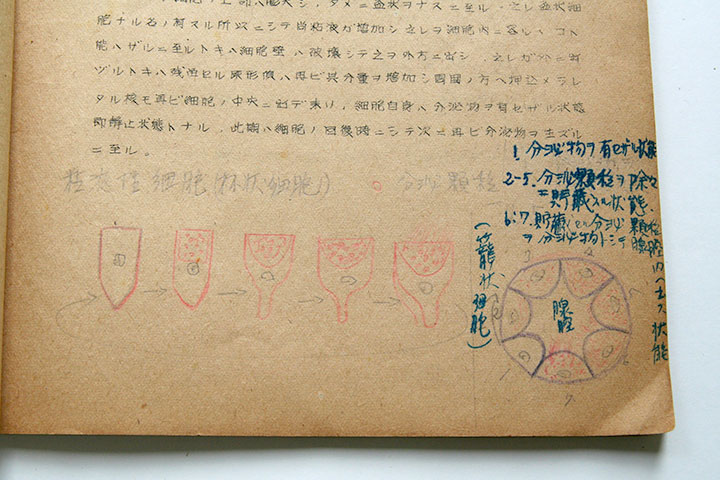 胞ナル名ノ有スル所以ニシテ尚粘液ガ増加シ之レヲ細胞内ニ容レヽコト
能ハザルニ至ルトキハ細胞壁ハ破壊シテ之ヲ外方ニ出シ、之レガ外ニ出
ヅルトキハ残留セル原形質ハ再ビ其分量ヲ増加シ周囲ノ方ヘ押込メラレ
タル核モ再ビ細胞ノ中央ニ出デ来リ、細胞自身ハ分泌物ヲ有セザル状態
即静止状態トナル、此期ハ細胞ノ回復時ニシテ次ニ再ビ分泌物ヲ生ズル
ニ至ル。
粘液性細胞(杯状細胞)
分泌顆粒
1. 分泌物ヲ有セザル状態
2-5. 分泌顆粒ヲ除々
ニ貯蔵スル状態.
6.7. 貯蔵セル分泌顆粒
ヲ分泌物トシテ腺腔内ニ出ス状態
(籠状細胞)
腺腔
1
2
3
6
7